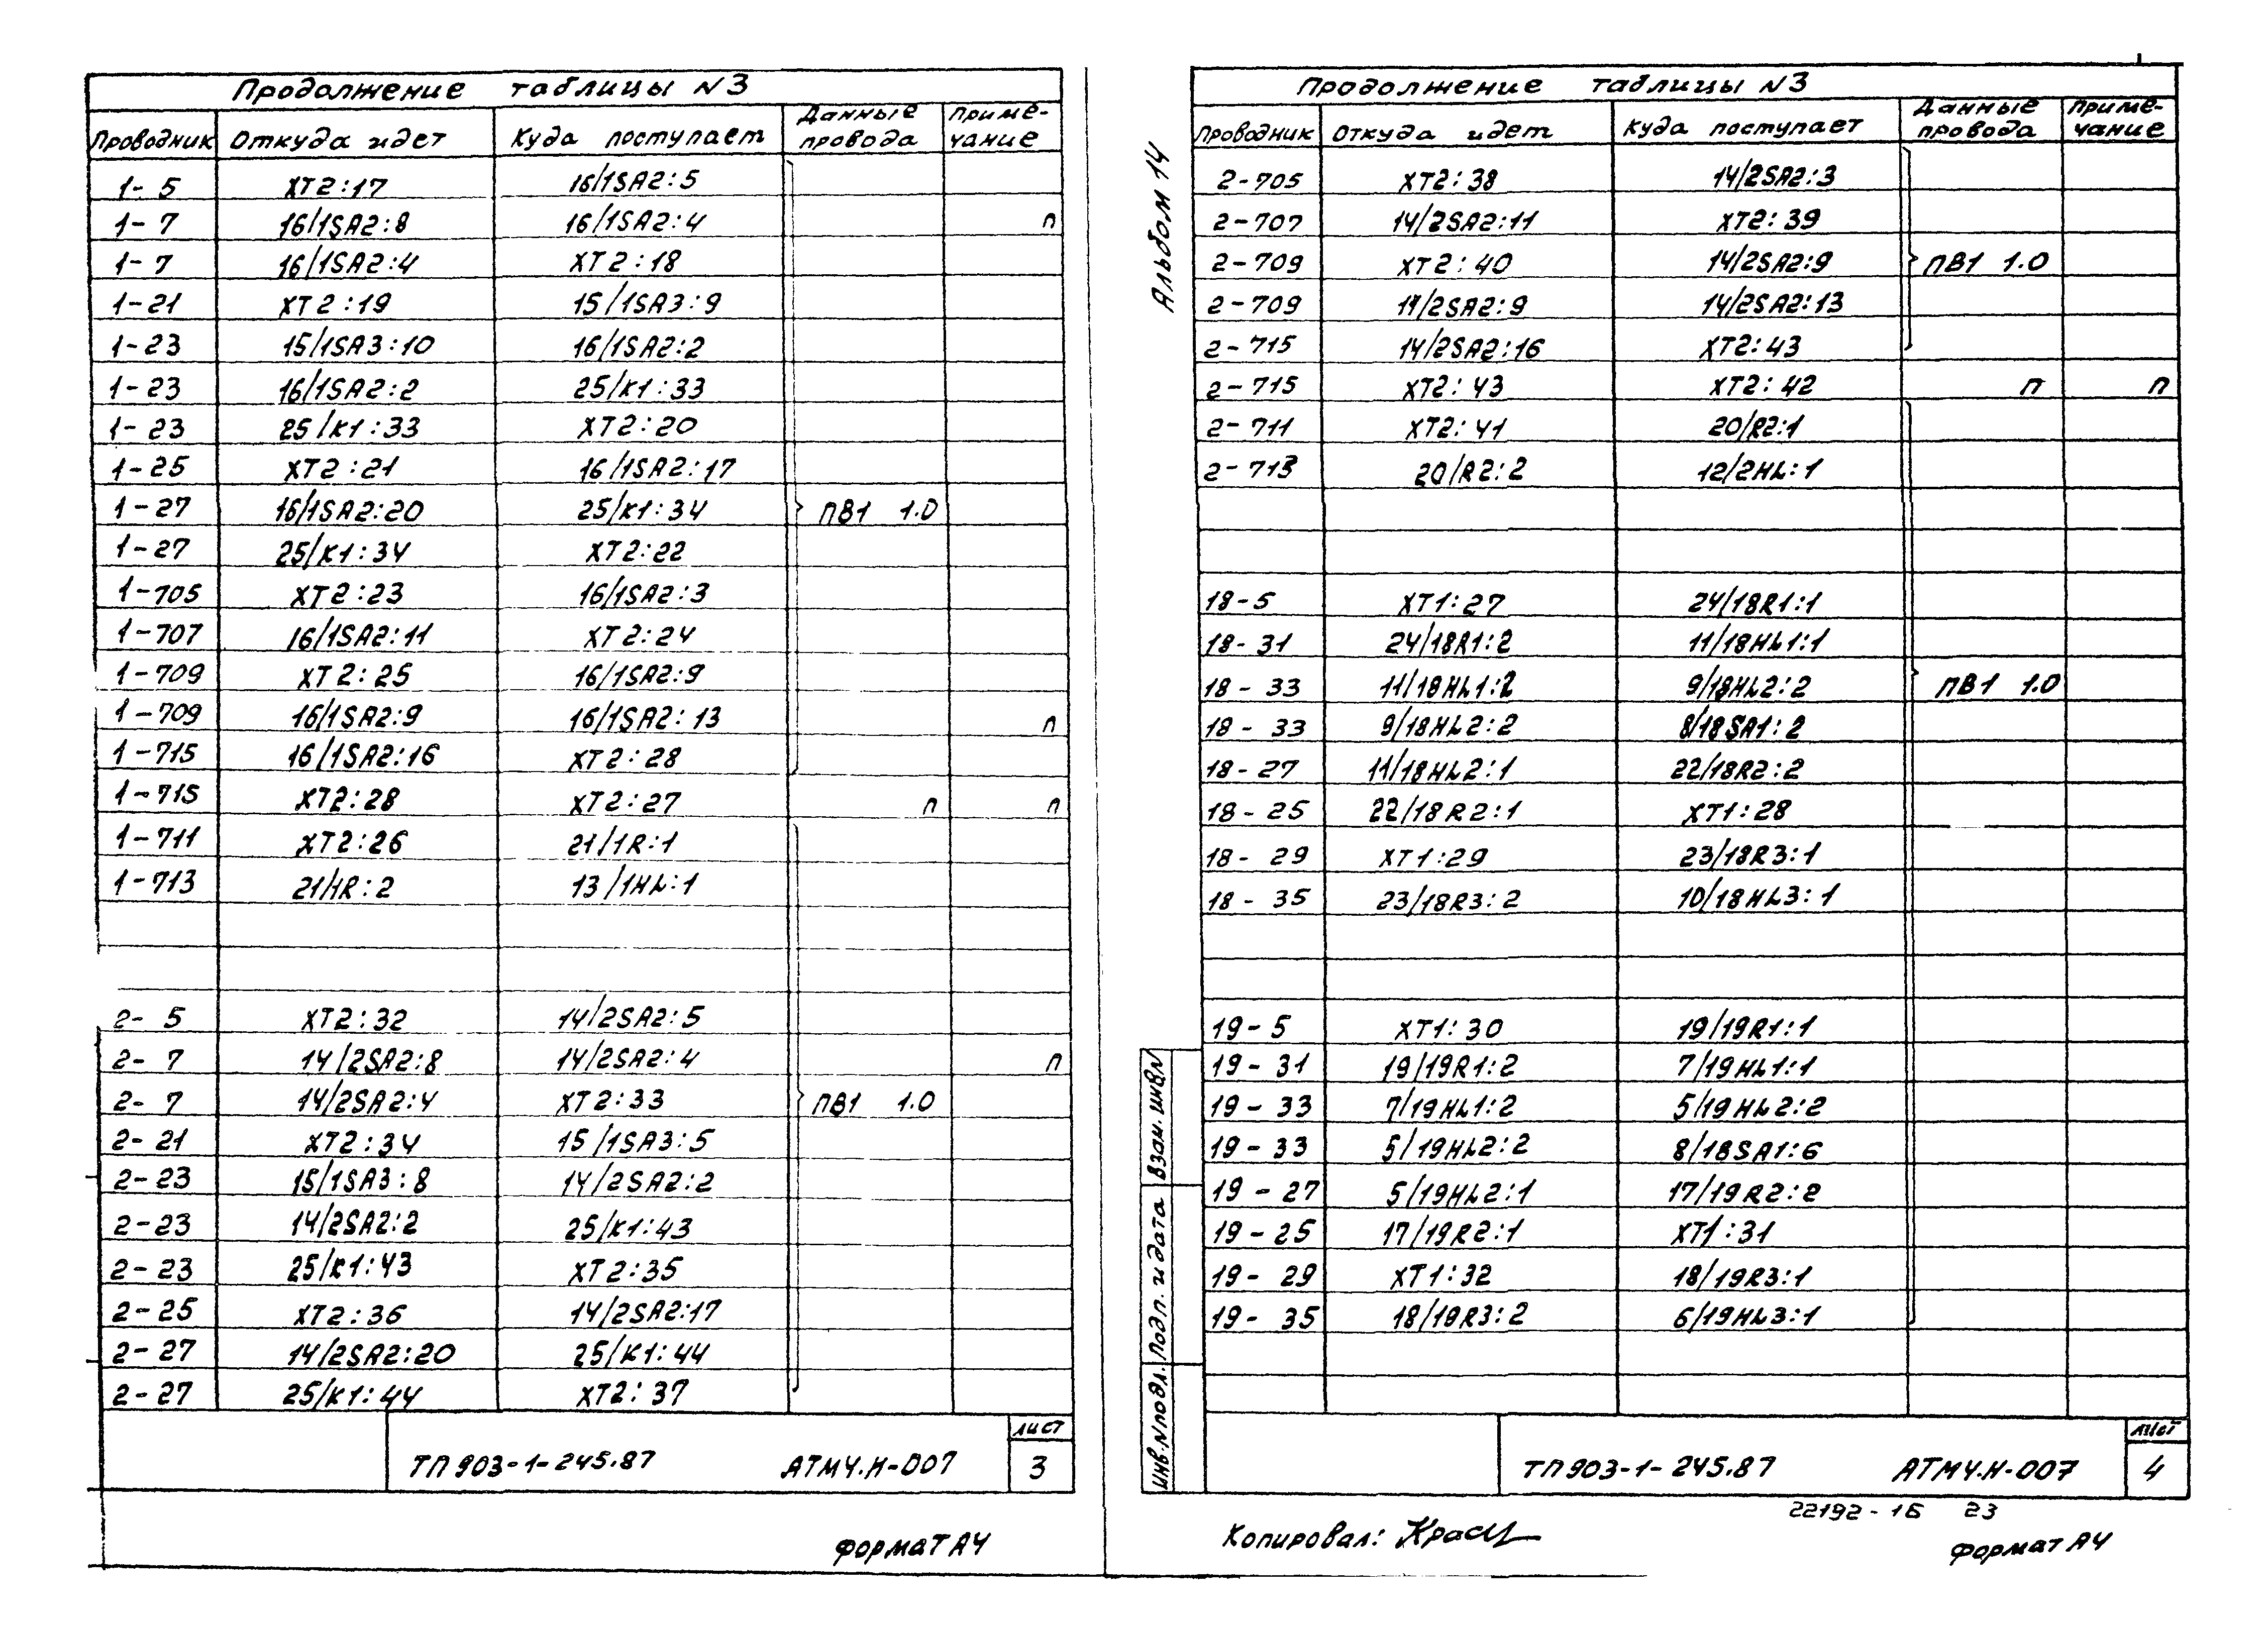 Продолжение таблицы N3
Проводник Откуда идет Куда поступает Данные провода Примечание
1-5 XT2:17 16/1SA2:5
1-7 16/1SA2:8 16/1SA2:4 п
1-7 16/1SA2:4 XT2:18
1-21 XT2:19 15/1SA3:9
1-23 15/1SA3:10 16/1SA2:2
1-23 16/1SA2:2 25/K1:33
1-23 25/K1:33 XT2:20
1-25 XT2:21 16/1SA2:17
1-27 16/1SA2:20 25/K1:34 ПВ1 1.0
1-27 25/K1:34 XT2:22
1-705 XT2:23 16/1SA2:3
1-707 16/1SA2:11 XT2:24
1-709 XT2:25 16/1SA2:9
1-709 16/1SA2:9 16/1SA2:13 п
1-715 16/1SA2:16 XT2:28
1-715 XT2:28 XT2:27 п п
1-711 XT2:26 21/1R:1
1-713 21/1R:2 13/1HL:1
2-5 XT2:32 14/2SA2:5
2-7 14/2SA2:8 14/2SA2:4 п
2-7 14/2SA2:4 XT2:33 ПВ1 1.0
2-21 XT2:34 15/1SA3:5
2-23 15/1SA3:8 14/2SA2:2
2-23 14/2SA2:2 25/K1:43
2-23 25/K1:43 XT2:35
2-25 XT2:36 14/2SA2:17
2-27 14/2SA2:20 25/K1:44
2-27 25/K1:44 XT2:37
ТП 903-1-245.87 АТМ4.Н-007 Лист 3
Формат А4
Альбом 14
Продолжение таблицы N3
Проводник Откуда идет Куда поступает Данные провода Примечание
2-705 XT2:38 14/2SA2:3
2-707 14/2SA2:11 XT2:39
2-709 XT2:40 14/2SA2:9 ПВ1 1.0
2-709 14/2SA2:9 14/2SA2:13
2-715 14/2SA2:16 XT2:43
2-715 XT2:43 XT2:42 п п
2-711 XT2:41 20/R2:1
2-713 20/R2:2 12/2HL:1
18-5 XT1:27 24/18R1:1
18-31 24/18R1:2 11/18HL1:1
18-33 11/18HL1:2 9/18HL2:2 ПВ1 1.0
18-33 9/18HL2:2 8/18SA1:2
18-27 11/18HL2:1 22/18R2:2
18-25 22/18R2:1 XT1:28
18-29 XT1:29 23/18R3:1
18-35 23/18R3:2 10/18HL3:1
19-5 XT1:30 19/19R1:1
19-31 19/19R1:2 7/19HL1:1
19-33 7/19HL1:2 5/19HL2:2
19-33 5/19HL2:2 8/18SA1:6
19-27 5/19HL2:1 17/19R2:2
19-25 17/19R2:1 XT1:31
19-29 XT1:32 18/19R3:1
19-35 18/19R3:2 6/19HL3:1
Инв.N подл. Подп. и дата Взам. инв N
ТП 903-1-245.87 АТМ4.Н-007 Лист 4
22192-16 23
Копировал:
Формат А4